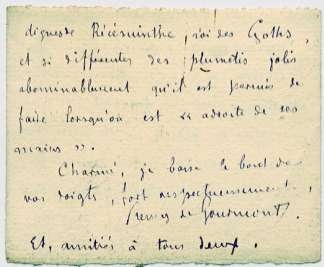 dignes de Récésvinthe, roi des Goths,
et si différentes des plumetis jolis
abominablement qu'il est permis de
faire lorsqu'on est « adroite de ses
mains ».
Charmé, je baise le bout de
vos doigts, fort respectueusement,
Remy de Gourmont.
Et, amitiés à tous deux.